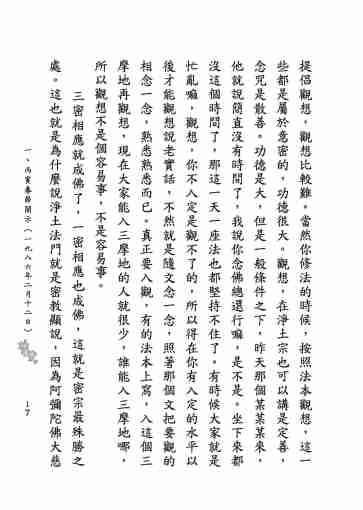 提倡觀想。觀想比較難。當然你修法的時候，按照法本觀想，這一
些都是屬於意密的，功德很大。觀想，在淨土宗也可以講是定善，
念咒是散善。功德是大，但是一般條件之下，昨天那個某某某來，
他就說簡直沒有時間了，我說你念佛總還行嘛，是不是。坐下來都
沒這個時間了，那這一天一座法也都堅持不住了。有時候大家就是
忙亂嘛，觀想。你不入定是觀不了的，所以得在你有入定的水平以
後才能觀想說老實話，不然就是隨文念一念，照著那個文把要觀的
相念一念，熟悉熟悉而已。真正要入觀，有的法本上寫，入這個三
摩地再觀想，現在大家能入三摩地的人就很少。誰能入三摩地哪，
所以觀想不是個容易事，不是容易事。
三密相應就成佛了，一密相應也成佛，這就是密宗最殊勝之
處。這也就是為什麼說淨土法門就是密教顯說。因為阿彌陀佛大慈
一、丙寅春節開示（一九八六年二月十二日）
17